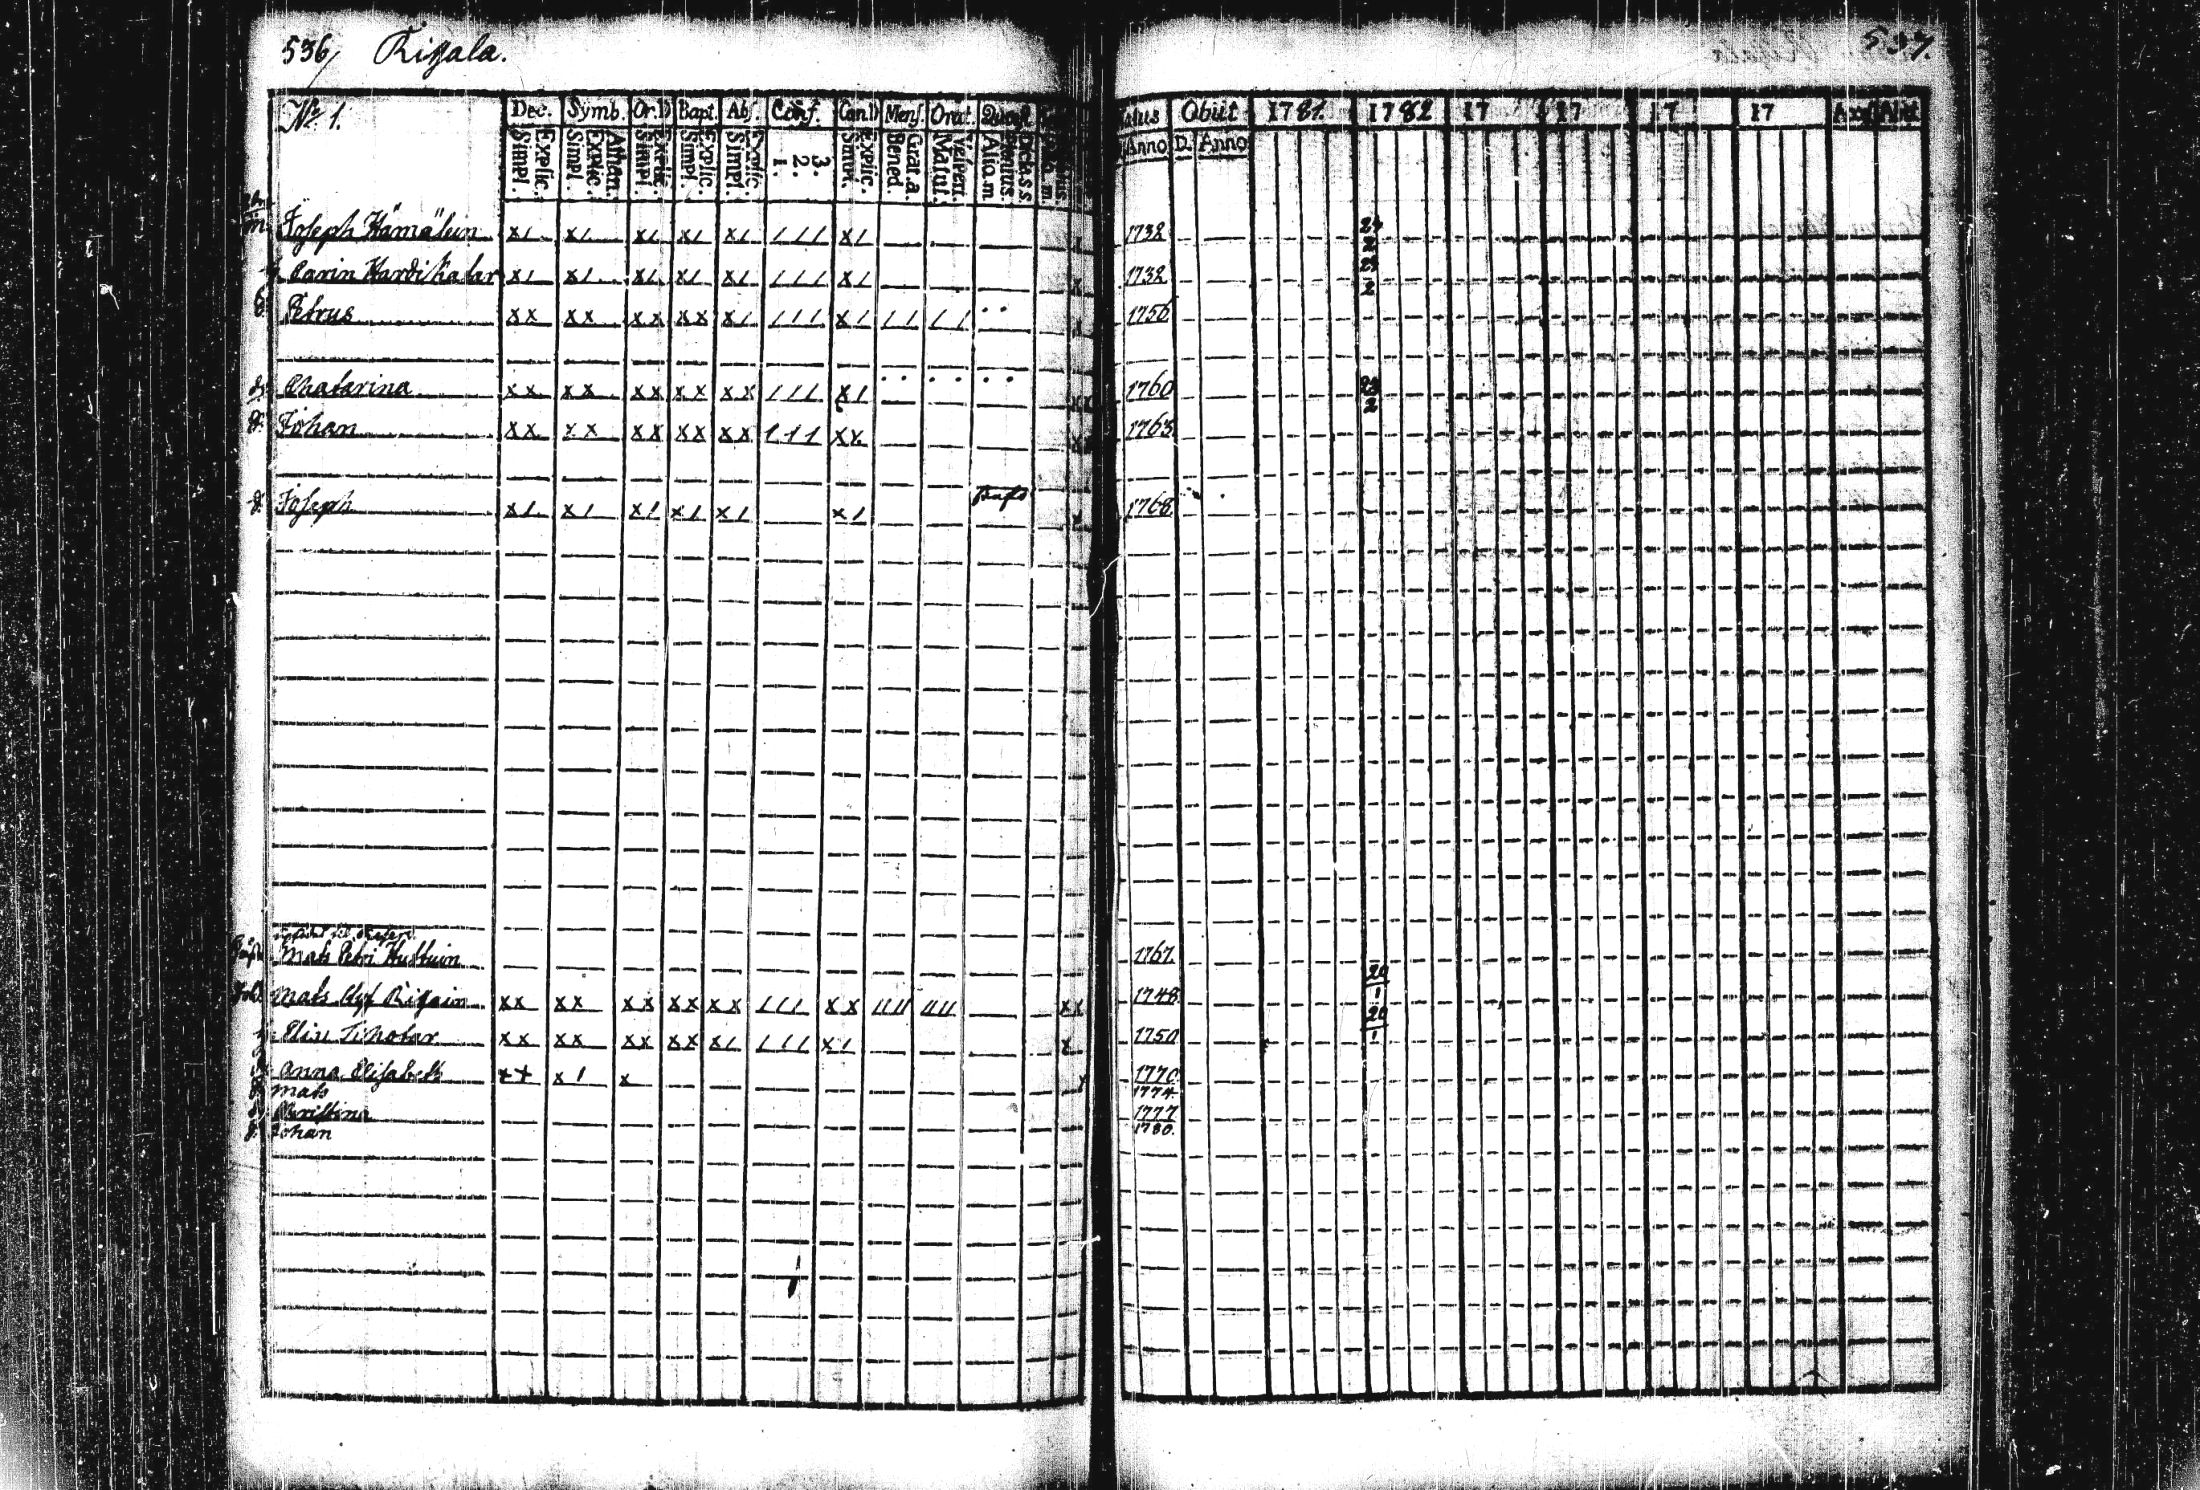 536 Rixala. 537.
No 1. Dec. Symb. Or.D Bapt. Abs. Conf. Cœn.D Mens. Orat. Quæst. Natus Obiit 1781. 1782 17 17 17 17
Explic. Simpl. Athan. Explic. Simpl. Explic. Simpl. Explic. Simpl. Explic. Simpl. 3. 2. 1. Explic. Simpl. Grat.a. Bened. Matut. Alio.m Anno D. Anno
m. Joseph Hämäläin x/ x/ x/ x/ x/ /// x/ 1738 24 2
Carin Hardikatar x/ x/ x/ x/ x/ /// x/ 1738 24 2
Petrus xx xx xx xx x/ /// x/ // // 1756
Chatarina xx xx xx xx xx /// x/ 1760 24 2
Johan xx xx xx xx xx /// xx 1763
Joseph x/ x/ x/ x/ x/ x/ 1768
Mats Petri Huttuin 1767
Mats Rixain xx xx xx xx xx /// xx //// //// xx 1748 20 1
Elin Tihotar xx xx xx xx x/ /// x/ x 1750 20 1
Anna Elisabeth xx x/ x 1770
Mats 1774
Christina 1777
Johan 1780.